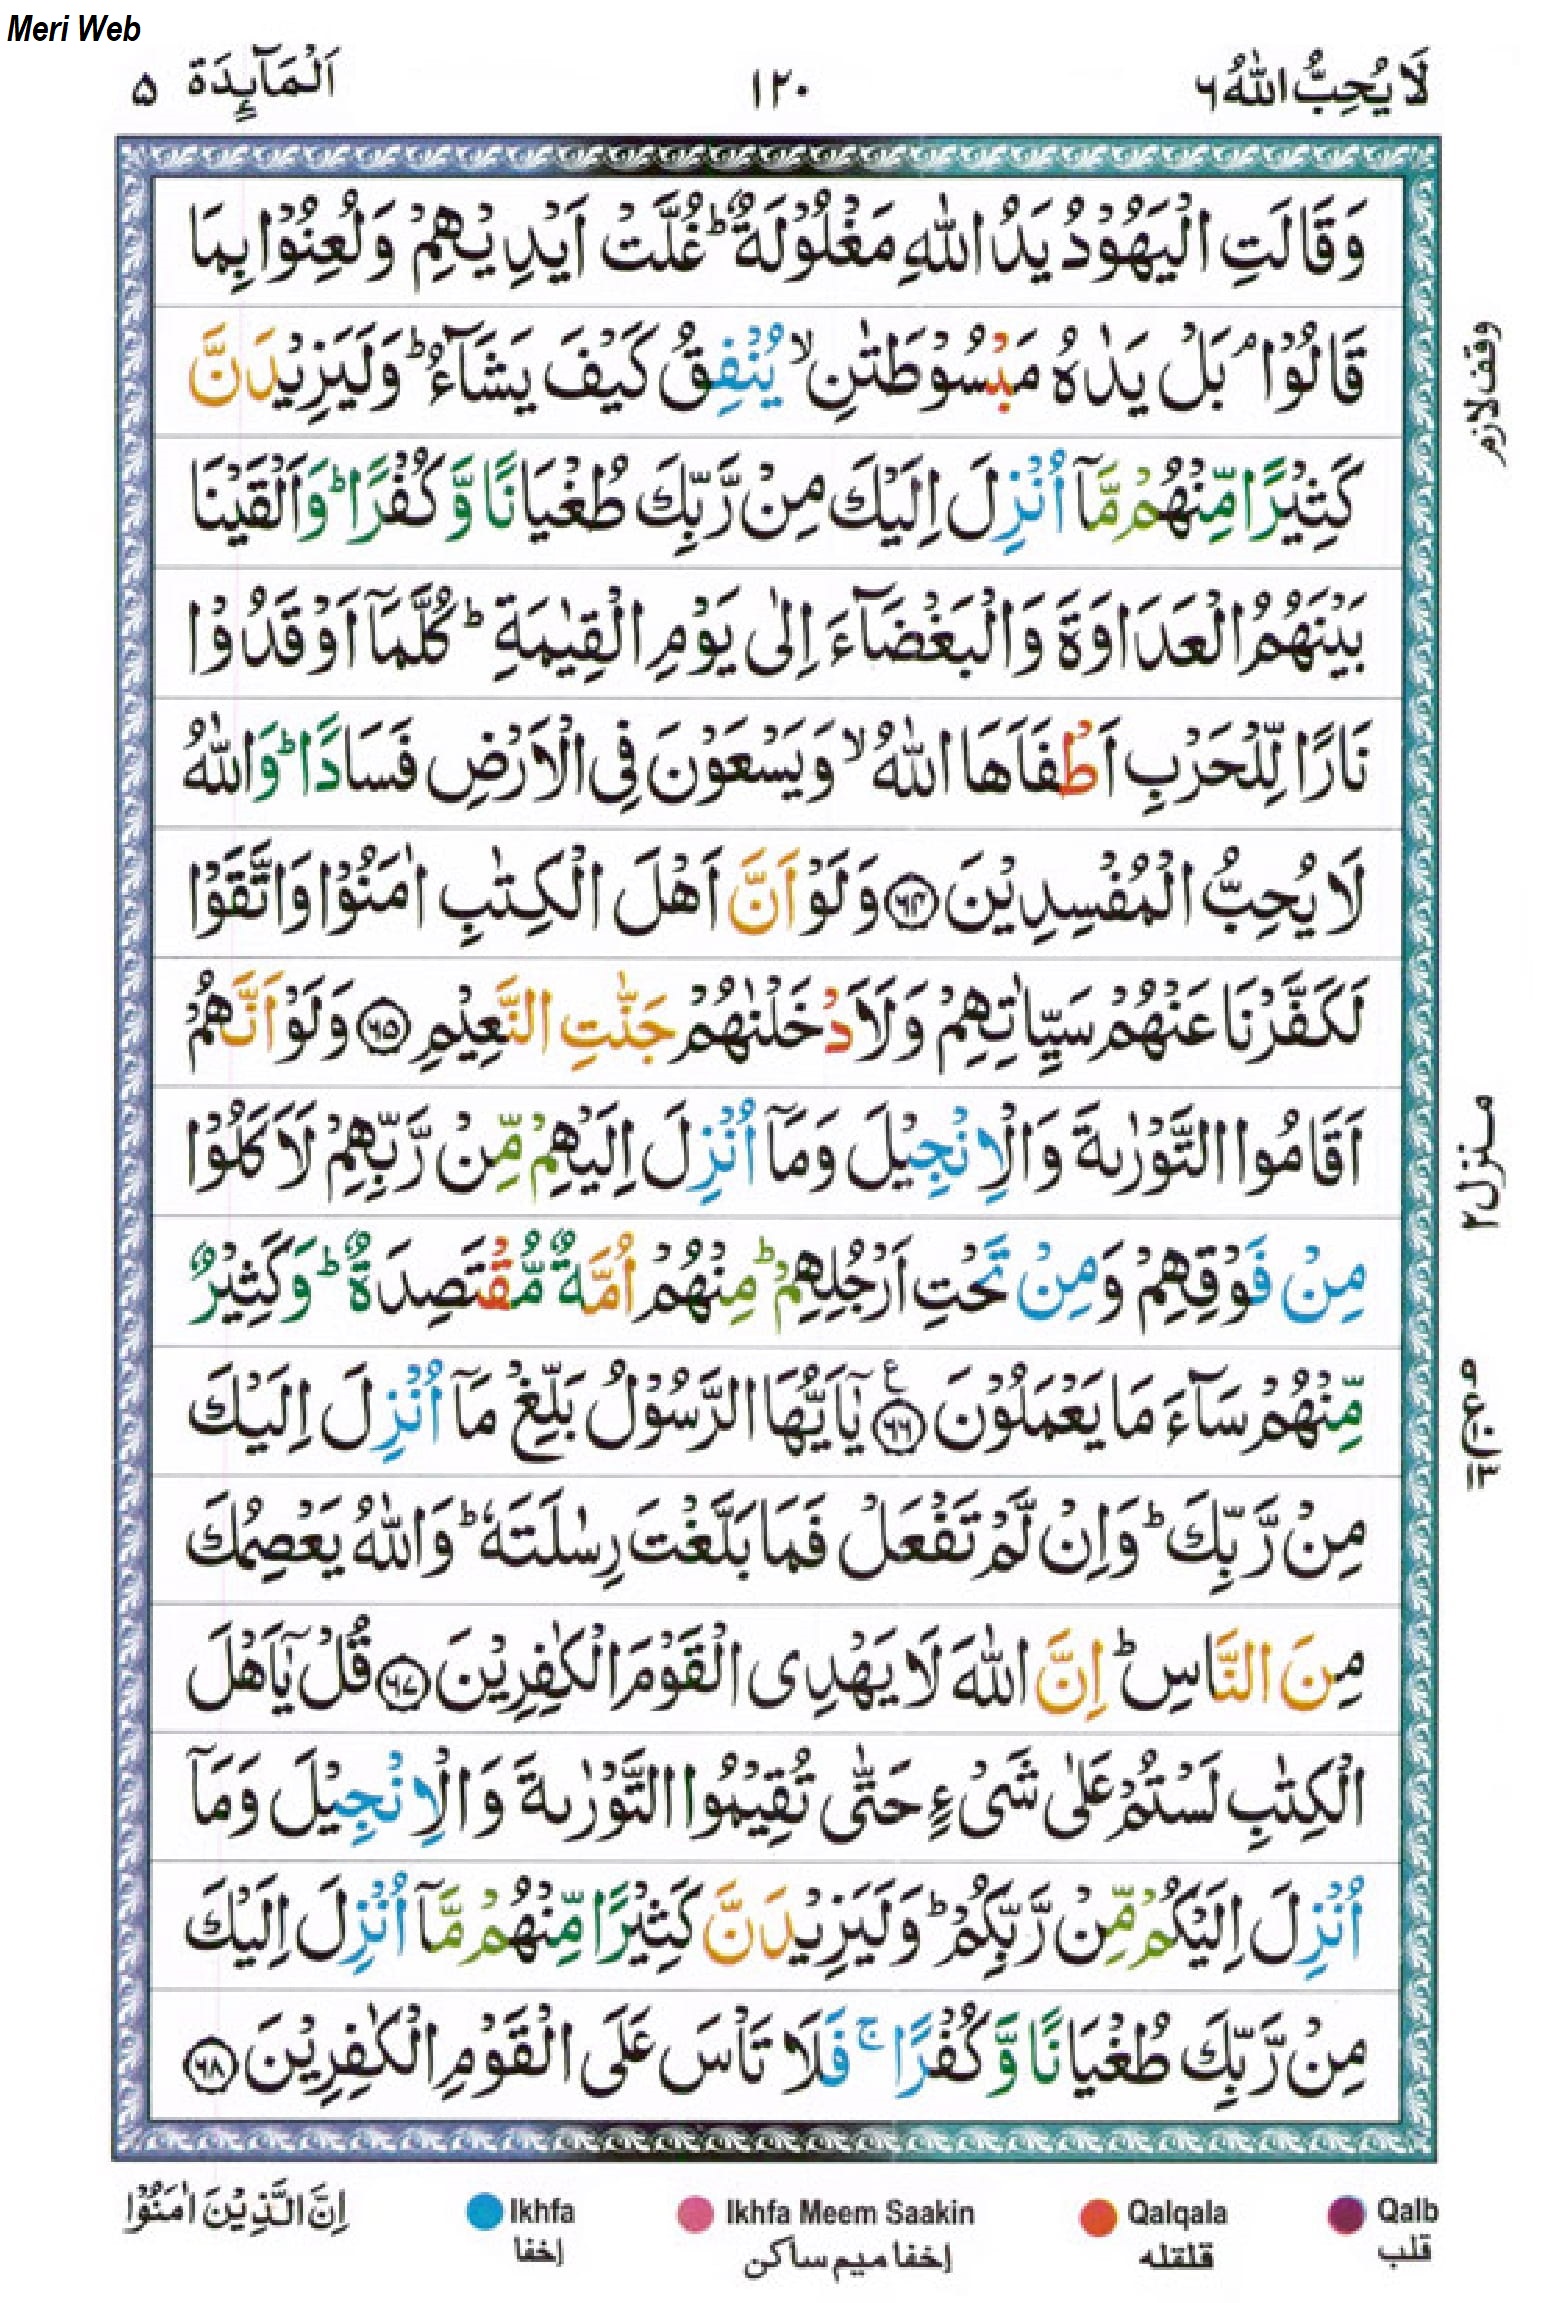 Meri Web
لَا يُحِبُّ اللّٰهُ ٦
١٢٠
اَلْمَآئِدَة ٥
وَقَالَتِ الْيَهُوْدُ يَدُ اللّٰهِ مَغْلُوْلَةٌ ؕ غُلَّتْ اَيْدِيْهِمْ وَلُعِنُوْا بِمَا
قَالُوْا ۘ بَلْ يَدٰهُ مَبْسُوْطَتٰنِ ۙ يُنْفِقُ كَيْفَ يَشَآءُ ؕ وَلَيَزِيْدَنَّ
كَثِيْرًا مِّنْهُمْ مَّاۤ اُنْزِلَ اِلَيْكَ مِنْ رَّبِّكَ طُغْيَانًا وَّكُفْرًا ؕ وَاَلْقَيْنَا
بَيْنَهُمُ الْعَدَاوَةَ وَالْبَغْضَآءَ اِلٰى يَوْمِ الْقِيٰمَةِ ؕ كُلَّمَاۤ اَوْقَدُوْا
نَارًا لِّلْحَرْبِ اَطْفَاَهَا اللّٰهُ ۙ وَيَسْعَوْنَ فِى الْاَرْضِ فَسَادًا ؕ وَاللّٰهُ
لَا يُحِبُّ الْمُفْسِدِيْنَ ﴿٦٤﴾ وَلَوْ اَنَّ اَهْلَ الْكِتٰبِ اٰمَنُوْا وَاتَّقَوْا
لَكَفَّرْنَا عَنْهُمْ سَيِّاٰتِهِمْ وَلَاَدْخَلْنٰهُمْ جَنّٰتِ النَّعِيْمِ ﴿٦٥﴾ وَلَوْ اَنَّهُمْ
اَقَامُوا التَّوْرٰىةَ وَالْاِنْجِيْلَ وَمَاۤ اُنْزِلَ اِلَيْهِمْ مِّنْ رَّبِّهِمْ لَاَكَلُوْا
مِنْ فَوْقِهِمْ وَمِنْ تَحْتِ اَرْجُلِهِمْ ؕ مِنْهُمْ اُمَّةٌ مُّقْتَصِدَةٌ ؕ وَكَثِيْرٌ
مِّنْهُمْ سَآءَ مَا يَعْمَلُوْنَ ﴿٦٦﴾ ع يٰۤاَيُّهَا الرَّسُوْلُ بَلِّغْ مَاۤ اُنْزِلَ اِلَيْكَ
مِنْ رَّبِّكَ ؕ وَاِنْ لَّمْ تَفْعَلْ فَمَا بَلَّغْتَ رِسٰلَتَهٗ ؕ وَاللّٰهُ يَعْصِمُكَ
مِنَ النَّاسِ ؕ اِنَّ اللّٰهَ لَا يَهْدِى الْقَوْمَ الْكٰفِرِيْنَ ﴿٦٧﴾ قُلْ يٰۤاَهْلَ
الْكِتٰبِ لَسْتُمْ عَلٰى شَىْءٍ حَتّٰى تُقِيْمُوا التَّوْرٰىةَ وَالْاِنْجِيْلَ وَمَاۤ
اُنْزِلَ اِلَيْكُمْ مِّنْ رَّبِّكُمْ ؕ وَلَيَزِيْدَنَّ كَثِيْرًا مِّنْهُمْ مَّاۤ اُنْزِلَ اِلَيْكَ
مِنْ رَّبِّكَ طُغْيَانًا وَّكُفْرًا ۚ فَلَا تَاْسَ عَلَى الْقَوْمِ الْكٰفِرِيْنَ ﴿٦٨﴾
وقف لازم
منزل ٢
اِنَّ الَّذِيْنَ اٰمَنُوْا
Ikhfa
إخفا
Ikhfa Meem Saakin
إخفا ميم ساكن
Qalqala
قلقله
Qalb
قلب